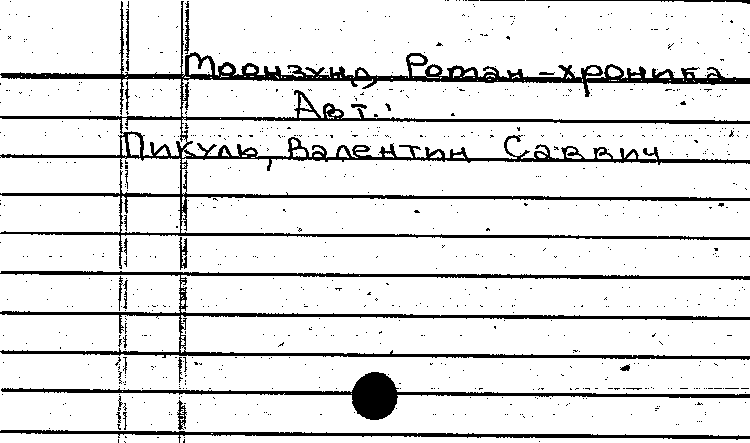 Моонзунд, Роман-хроника
Авт.:
Пикуль, Валентин Саввич